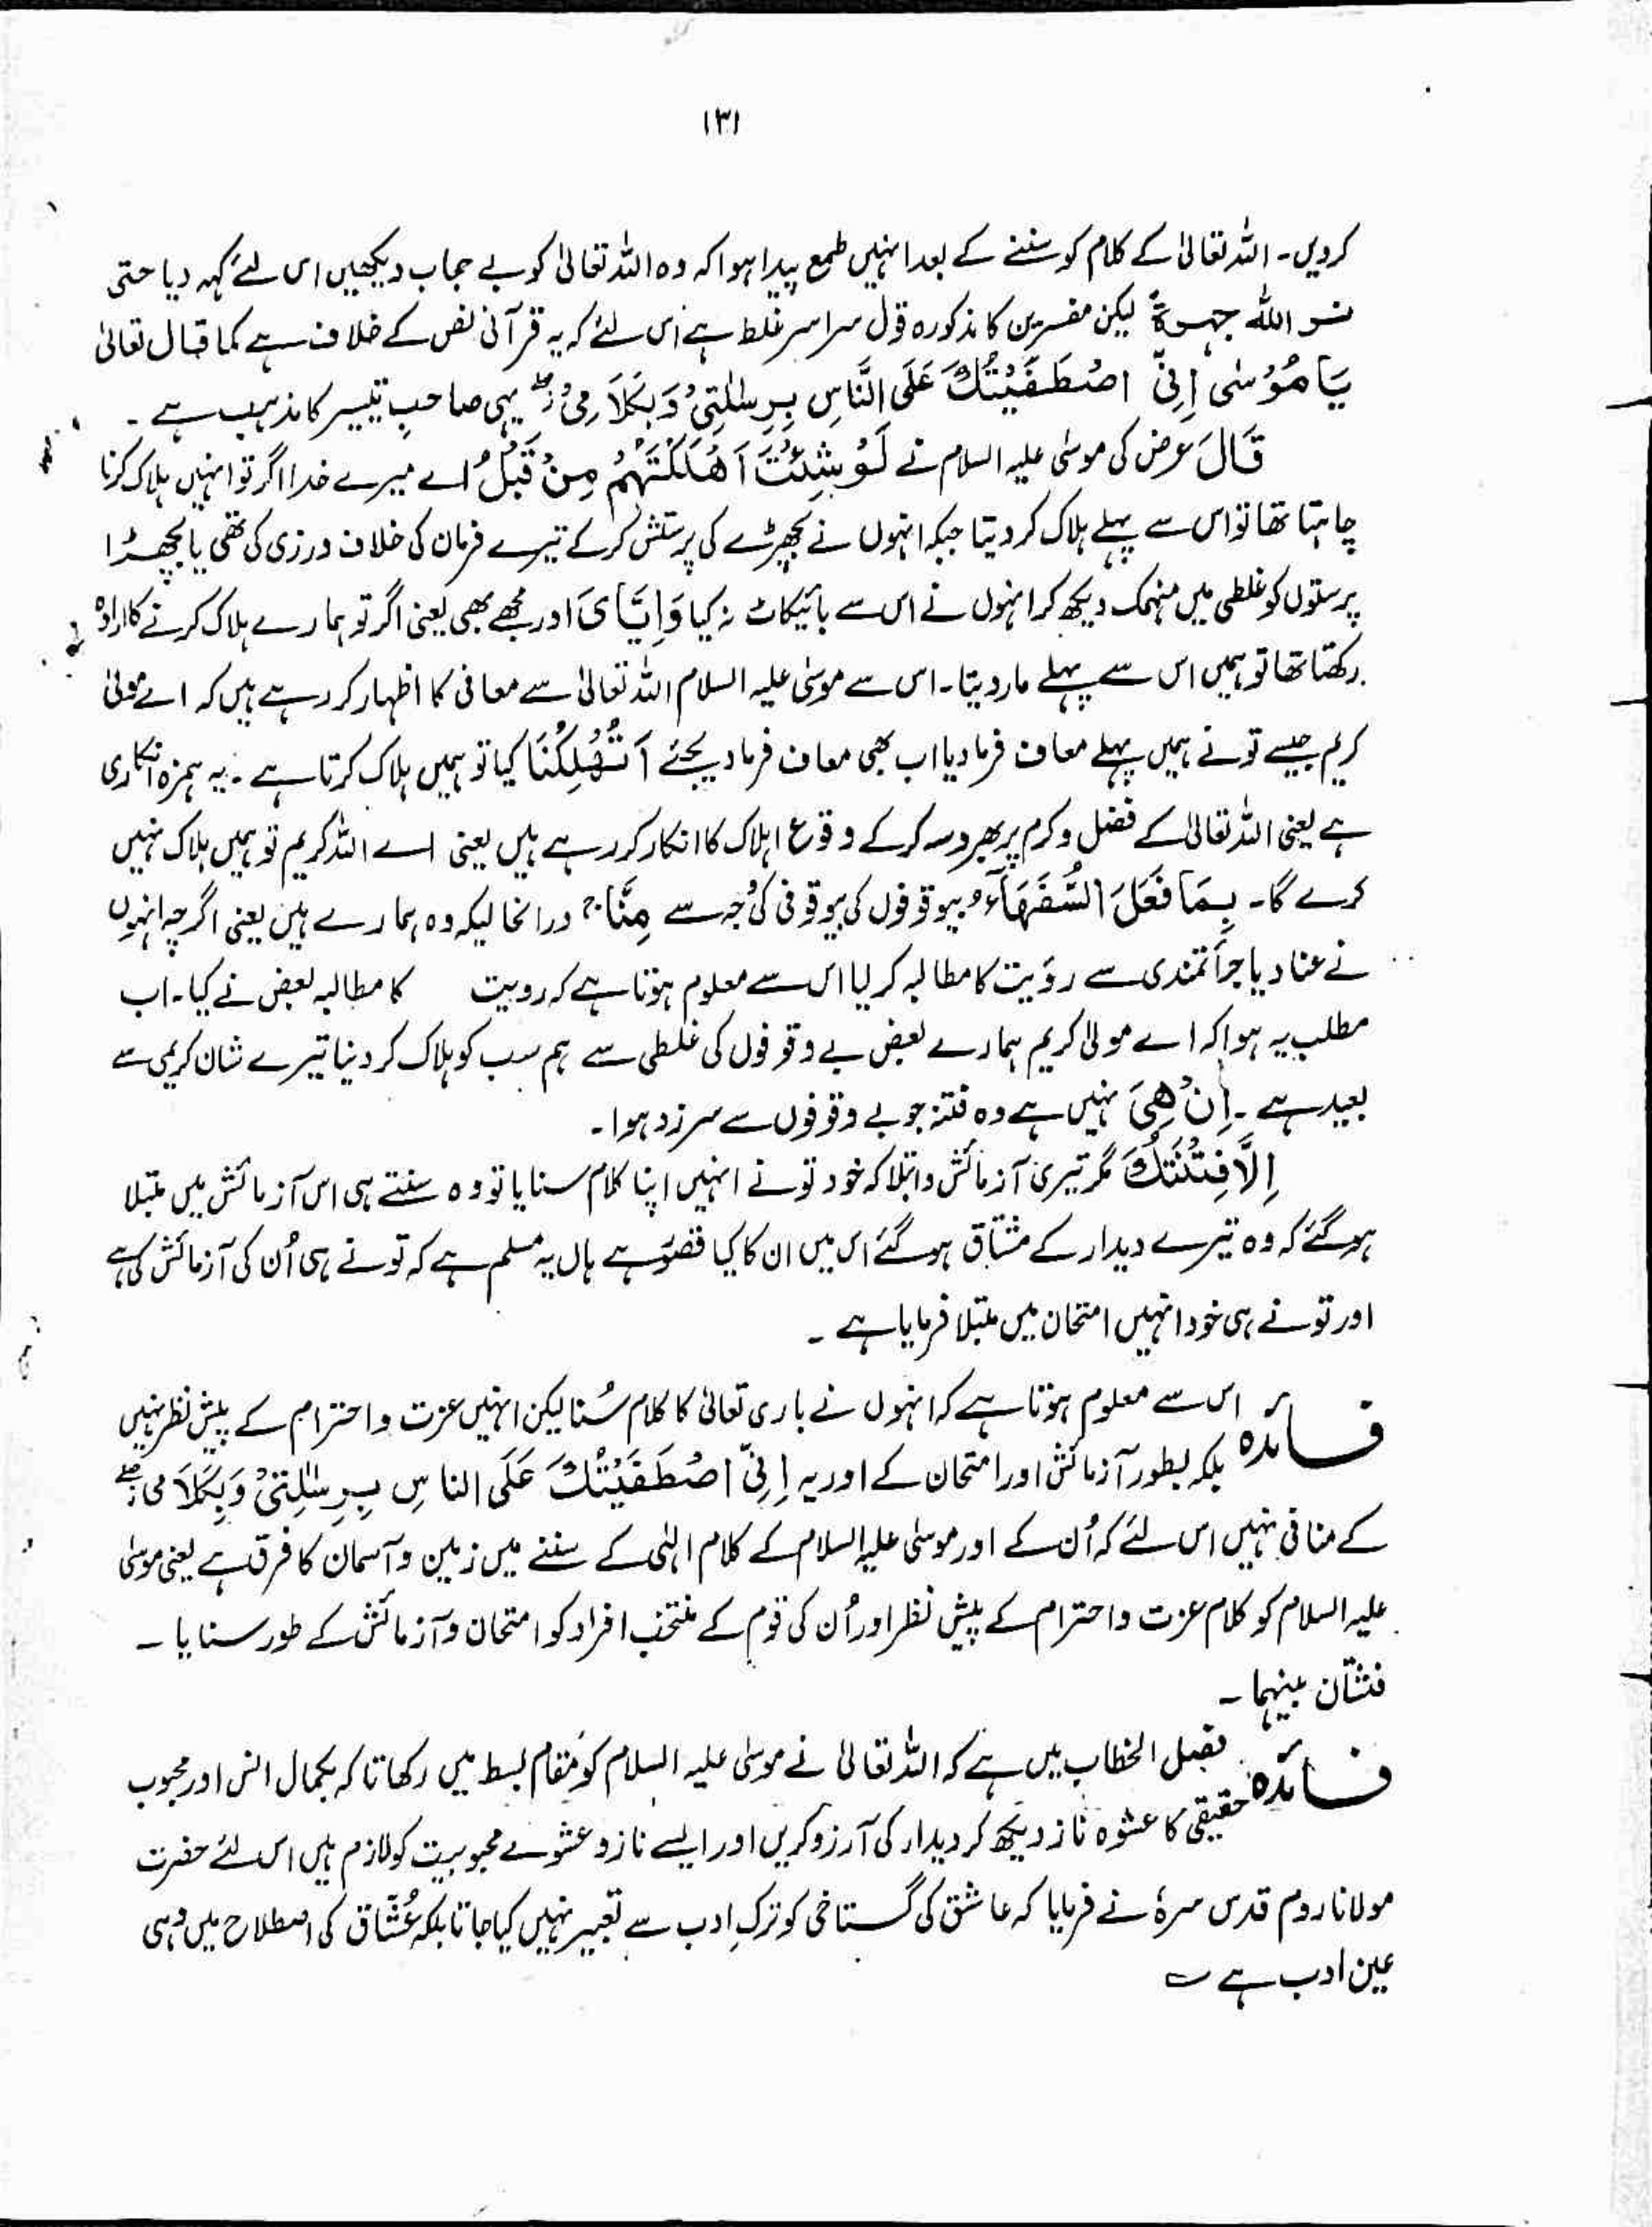 ۱۳۱
کردیں۔ اللہ تعالیٰ کے کلام کو سننے کے بعد انہیں طمع پیدا ہوا کہ وہ اللہ تعالیٰ کو بے حجاب دیکھیں اس لئے کہہ دیا حتی
نـــر اللہ جہـــرۃً لیکن مفسرین کا مذکورہ قول سراسر غلط ہے اس لئے کہ یہ قرآنی نص کے خلاف ہے کما قال تعالیٰ
یَا مُوْسٰی اِنِّی اصْطَفَیْتُكَ عَلَی النَّاسِ بِرِسٰلٰتِیْ وَ بِکَلَامِیْ زصلے یہی صاحبِ تیسیر کا مذہب ہے ۔
قَالَ عرض کی موسٰی علیہ السلام نے لَوْ شِئْتَ اَهْلَكْتَهُمْ مِنْ قَبْلُ اے میرے خدا اگر تو انہیں ہلاک کرنا
چاہتا تھا تو اس سے پہلے ہلاک کر دیتا جبکہ انہوں نے بچھڑے کی پرستش کر کے تیرے فرمان کی خلاف ورزی کی تھی یا بچھڑا
پرستوں کو غلطی میں منہمک دیکھ کر انہوں نے اس سے بائیکاٹ نہ کیا وَاِیَّایَ اور مجھے بھی یعنی اگر تو ہمارے ہلاک کرنے کا ارادہ
رکھتا تھا تو ہمیں اس سے پہلے مار دیتا۔ اس سے موسٰی علیہ السلام اللہ تعالیٰ سے معافی کا اظہار کر رہے ہیں کہ اے مولیٰ
کریم جیسے تو نے ہمیں پہلے معاف فرما دیا اب بھی معاف فرما دیجئے اَتُهْلِكُنَا کیا تو ہمیں ہلاک کرتا ہے ۔ یہ ہمزہ انکاری
ہے یعنی اللہ تعالیٰ کے فضل و کرم پر بھروسہ کر کے وقوع اہلاک کا انکار کر رہے ہیں یعنی اے اللہ کریم تو ہمیں ہلاک نہیں
کرے گا۔ بِمَا فَعَلَ السُّفَهَآءُ بیوقوفوں کی بیوقوفی کی وجہ سے مِنَّا ج درانحالیکہ وہ ہمارے ہیں یعنی اگرچہ انہوں
نے عناد یا جرأتمندی سے رؤیت کا مطالبہ کر لیا اس سے معلوم ہوتا ہے کہ رویت کا مطالبہ بعض نے کیا۔ اب
مطلب یہ ہوا کہ اے مولیٰ کریم ہمارے بعض بے وقوفوں کی غلطی سے ہم سب کو ہلاک کر دینا تیرے شان کریمی سے
بعید ہے ۔ اِنْ هِیَ نہیں ہے وہ فتنہ جو بے وقوفوں سے سرزد ہوا ۔
اِلَّا فِتْنَتُكَ مگر تیری آزمائش و ابتلا کہ خود تو نے انہیں اپنا کلام سنایا تو وہ سنتے ہی اس آزمائش میں مبتلا
ہو گئے کہ وہ تیرے دیدار کے مشتاق ہو گئے اس میں ان کا کیا قصور ہے ہاں یہ مسلم ہے کہ تو نے ہی اُن کی آزمائش کی ہے
اور تو نے ہی خود انہیں امتحان میں مبتلا فرمایا ہے ۔
فـــائدہ اس سے معلوم ہوتا ہے کہ انہوں نے باری تعالیٰ کا کلام سُنا لیکن انہیں عزت و احترام کے پیش نظر نہیں
بلکہ بطور آزمائش اور امتحان کے اور یہ اِنِّی اصْطَفَیْتُكَ عَلَی الناسِ بِرِسٰلٰتِیْ وَبِکَلَامِی زصلے
کے منافی نہیں اس لئے کہ اُن کے اور موسٰی علیہ السلام کے کلام الٰہی کے سننے میں زمین و آسمان کا فرق ہے یعنی موسٰی
علیہ السلام کو کلام عزت و احترام کے پیش نظر اور اُن کی قوم کے منتخب افراد کو امتحان و آزمائش کے طور سنایا ۔
فشتّان بینہما ۔
فـــائدہ فصل الخطاب میں ہے کہ اللہ تعالیٰ نے موسٰی علیہ السلام کو مقام بسط میں رکھا تاکہ بکمال انس اور محبوب
حقیقی کا عشوہ ناز دیکھ کر دیدار کی آرزو کریں اور ایسے ناز و عشوے محبوبیت کو لازم ہیں اس لئے حضرت
مولانا روم قدس سرہٗ نے فرمایا کہ عاشق کی گستاخی کو ترکِ ادب سے تعبیر نہیں کیا جاتا بلکہ عُشّاق کی اصطلاح میں وہی
عین ادب ہے ؎